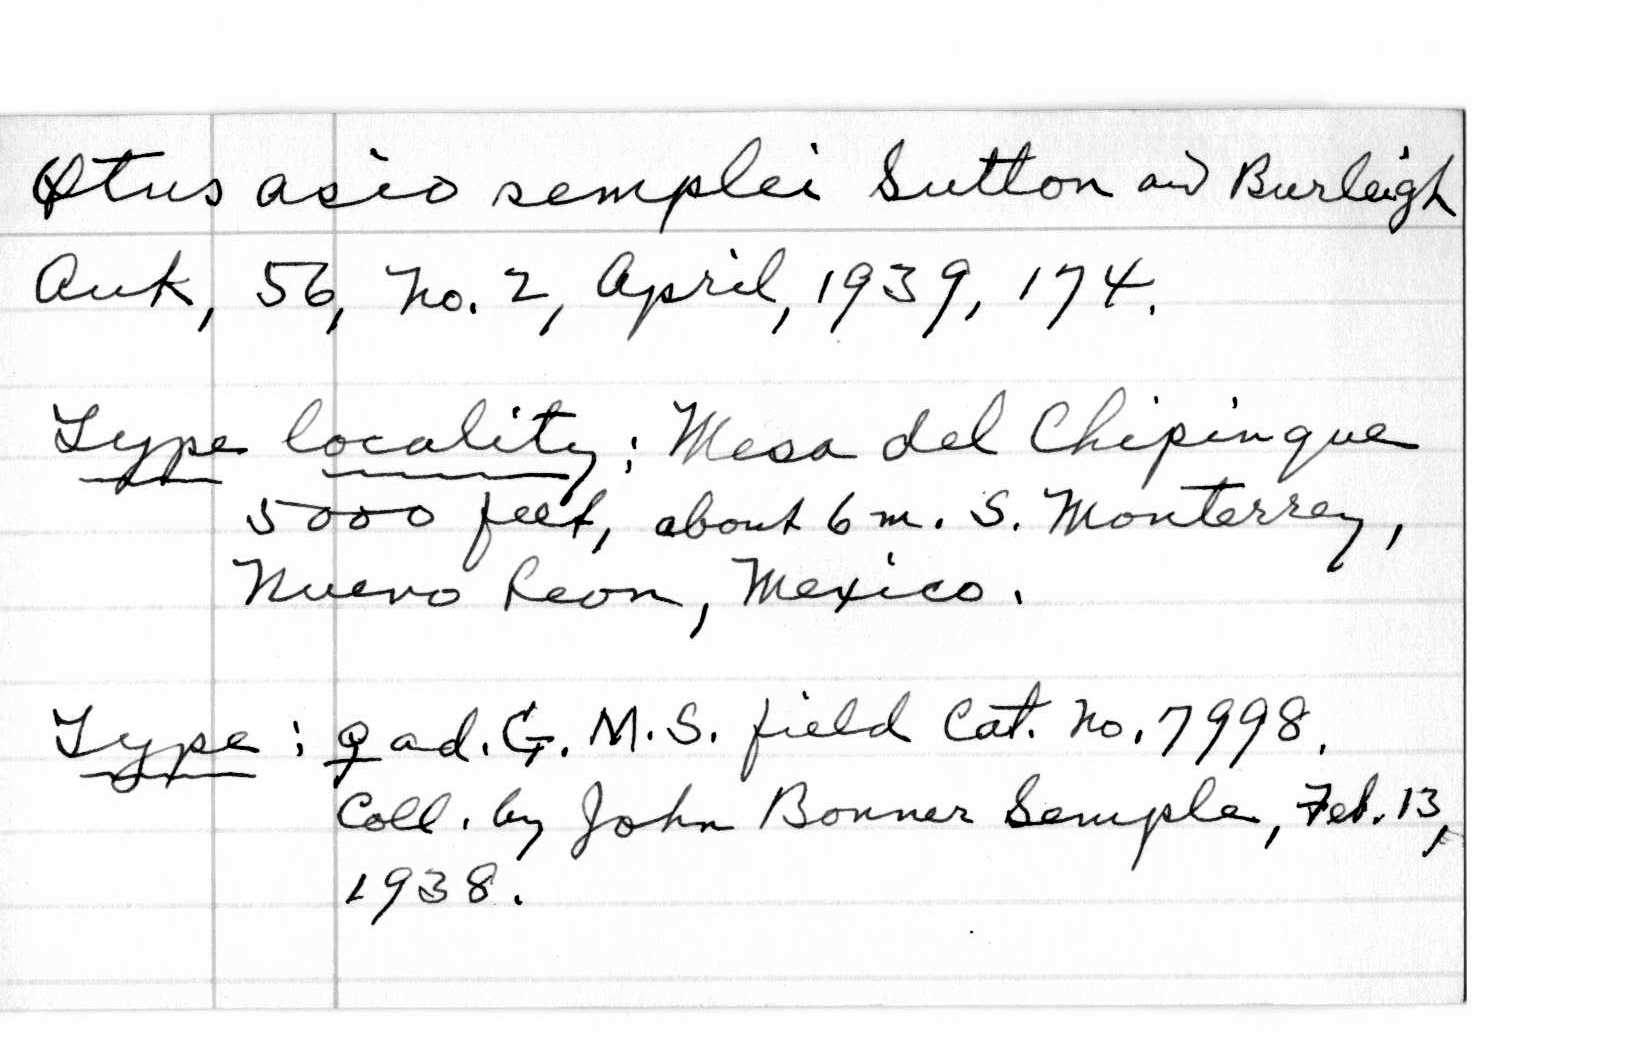 Otus asio semplei Sutton and Burleigh
Auk, 56, No. 2, April, 1939, 174.
Type locality: Mesa del Chipinque
5000 feet, about 6 m. S. Monterrey,
Nuevo Leon, Mexico.
Type: ♀ ad. G. M. S. field Cat. No. 7998.
Coll. by John Bonner Semple, Feb. 13,
1938.